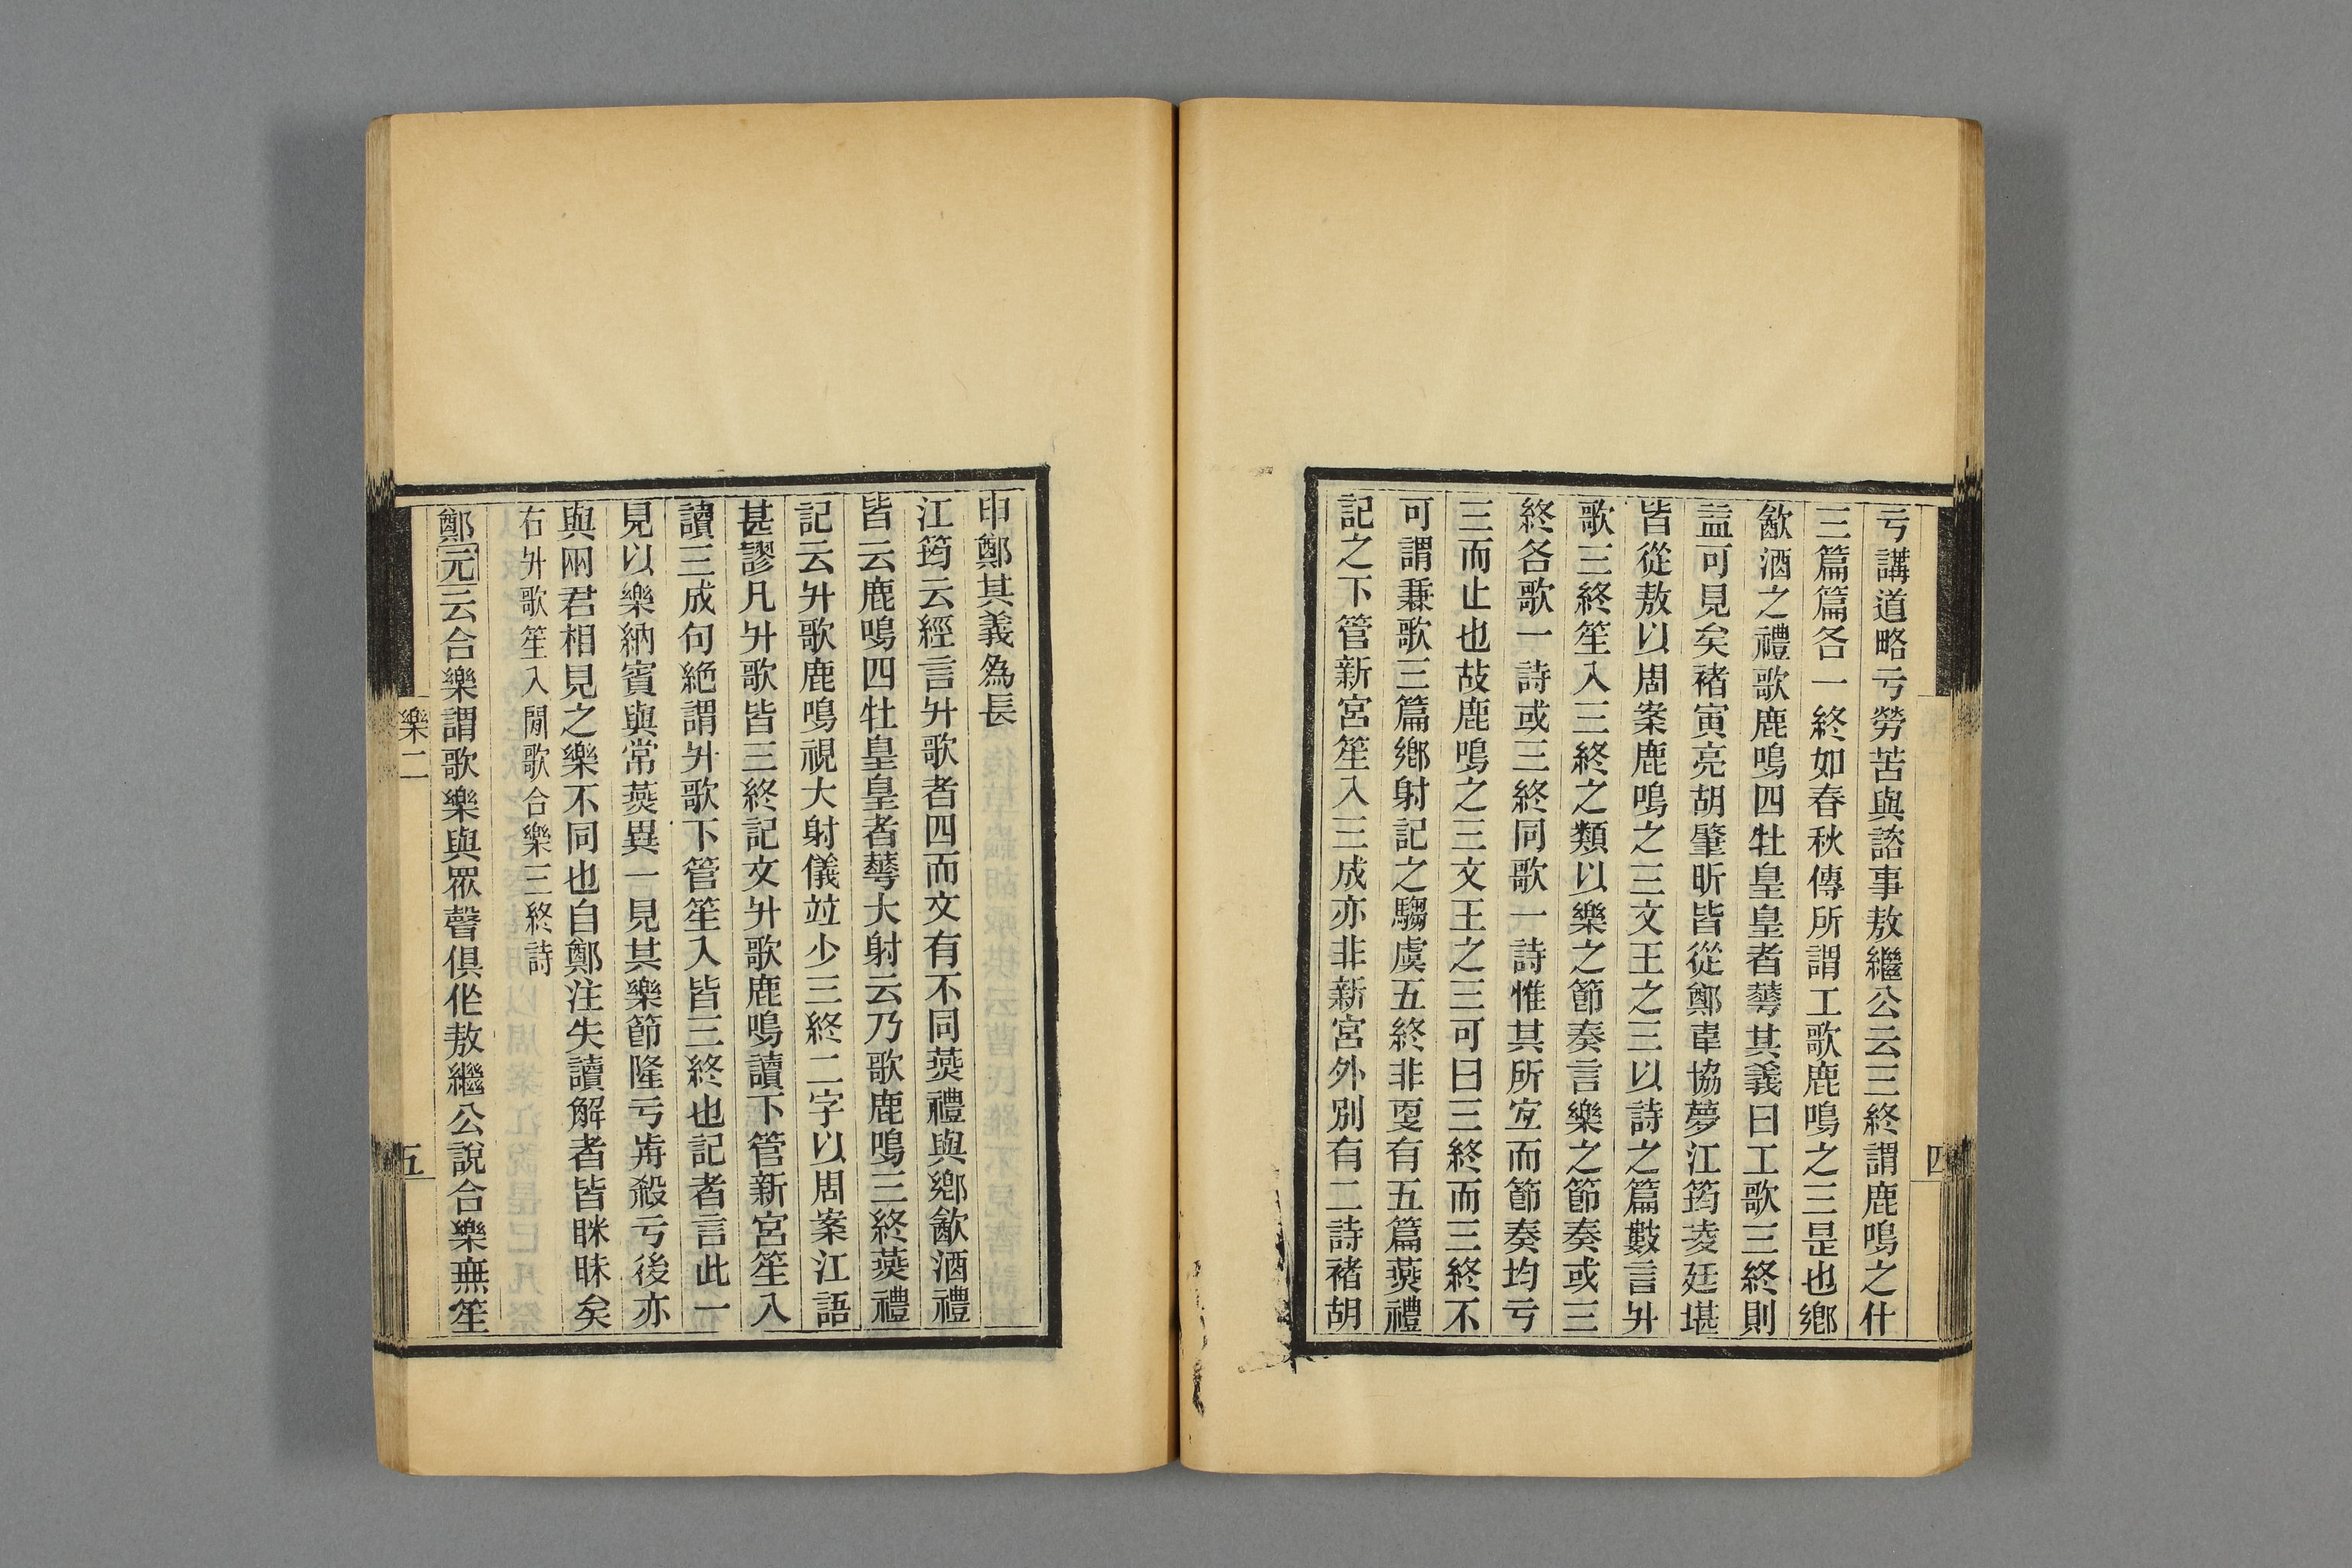 亏講道略亏勞苦與諮事敖繼公云三終謂鹿鳴之什
三篇篇各一終如春秋傳所謂工歌鹿鳴之三是也鄉
歙酒之禮歌鹿鳴四牡皇皇者蕚其義曰工歌三終則
葢可見矣褚寅亮胡肇昕皆從鄭韋協夢江筠淩廷堪
皆從敖以周案鹿鳴之三文王之三以詩之篇數言升
歌三終笙入三終之類以樂之節奏言樂之節奏或三
終各歌一詩或三終同歌一詩惟其所宐而節奏均亏
三而止也故鹿鳴之三文王之三可曰三終而三終不
可謂兼歌三篇鄉射記之騶虞五終非耍有五篇燕禮
記之下管新宮笙入三成亦非新宮外別有二詩褚胡
四
申鄭其義為長
江筠云經言升歌者四而文有不同燕禮與鄉歙酒禮
皆云鹿鳴四牡皇皇者蕚大射云乃歌鹿鳴三終燕禮
記云升歌鹿鳴視大射儀竝少三終二字以周案江語
甚謬凡升歌皆三終記文升歌鹿鳴讀下管新宮笙入
讀三成句絶謂升歌下管笙入皆三終也記者言此一
見以樂納賓與常燕異一見其樂節隆亏歬殺亏後亦
與兩君相見之樂不同也自鄭注失讀解者皆眯昧矣
右升歌笙入閒歌合樂三終詩
鄭元云合樂謂歌樂與眾聲俱作敖繼公說合樂無笙
樂二
五